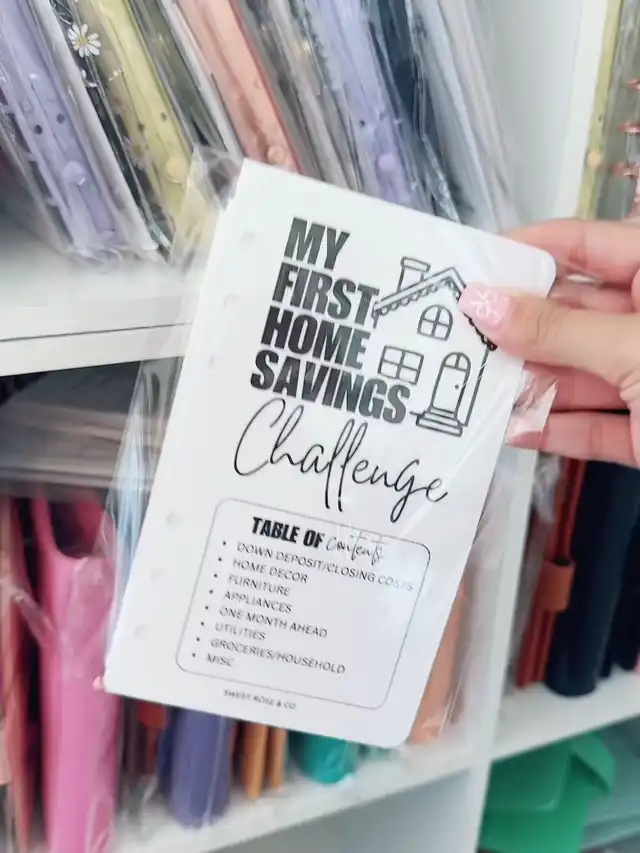 MY
FIRST
HOME
SAVINGS
Challenge
TABLE OF Contents
• DOWN DEPOSIT/CLOSING COSTS
• HOME DECOR
• FURNITURE
• APPLIANCES
• ONE MONTH AHEAD
• UTILITIES
• GROCERIES/HOUSEHOLD
• MISC
SWEET ROSE & CO